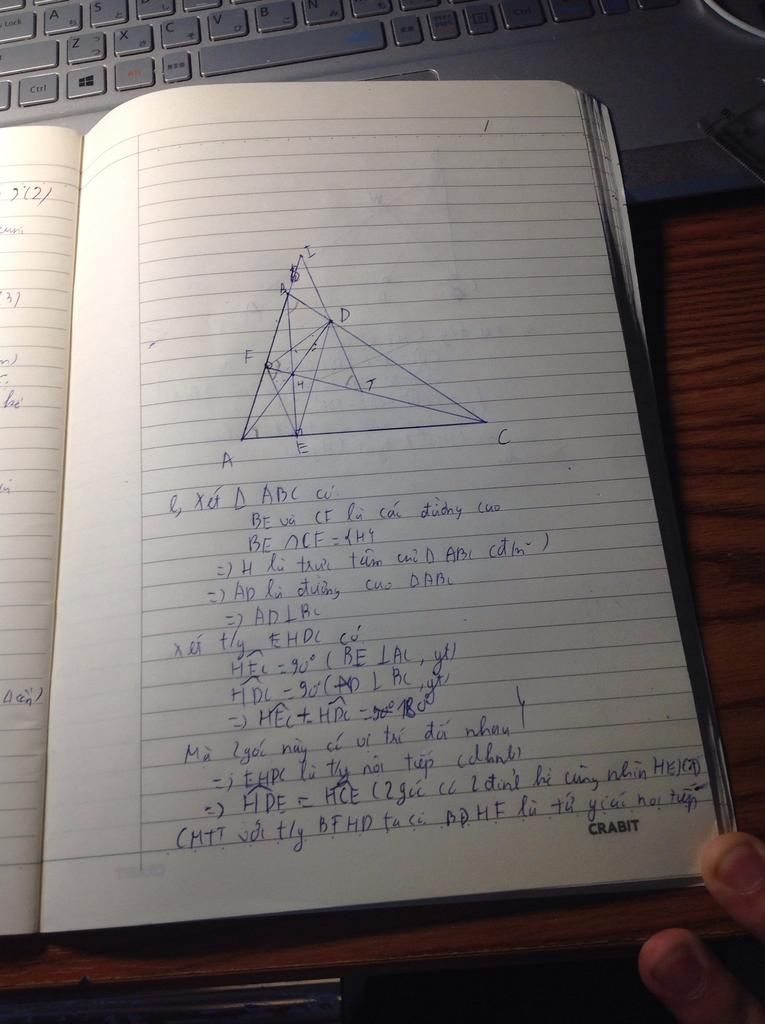 I
B
D
F
H
T
A
E
C
Xét Δ ABC có
BE và CF là các đường cao
BE ∩ CF = {H}
=) H là trực tâm của Δ ABC (đ/n)
=) AD là đường cao ΔABC
=) AD ⊥ BC
Xét t/g EHDC có
HEC = 90° ( BE ⊥ AC , gt)
HDC = 90° (AD ⊥ BC, gt)
=) HEC + HDC = 180°
Mà 2 góc này có vị trí đối nhau
=) EHDC là t/g nội tiếp (dhnb)
=) HDE = HCE (2 góc có 2 đỉnh kề cùng nhìn HE)
CMTT với t/g BFHD ta có BDHF là tứ giác nội tiếp
CRABIT
Ctrl
Alt
Z
X
C
V
B
N